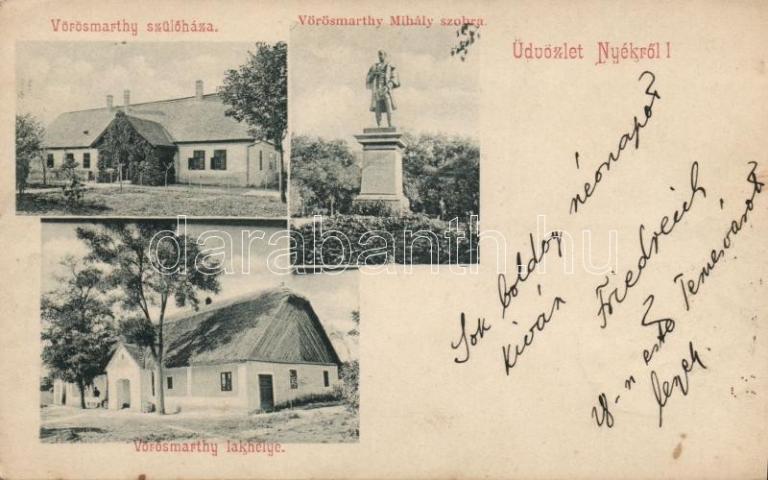 Vörösmarthy szülőháza.
Vörösmarthy Mihály szobra.
Üdvözlet Nyékről!
Sok boldog néonapot
kiván Friedreich
18-n este Temesvárott
legek.
Vörösmarthy lakhelye.
darabanth.hu